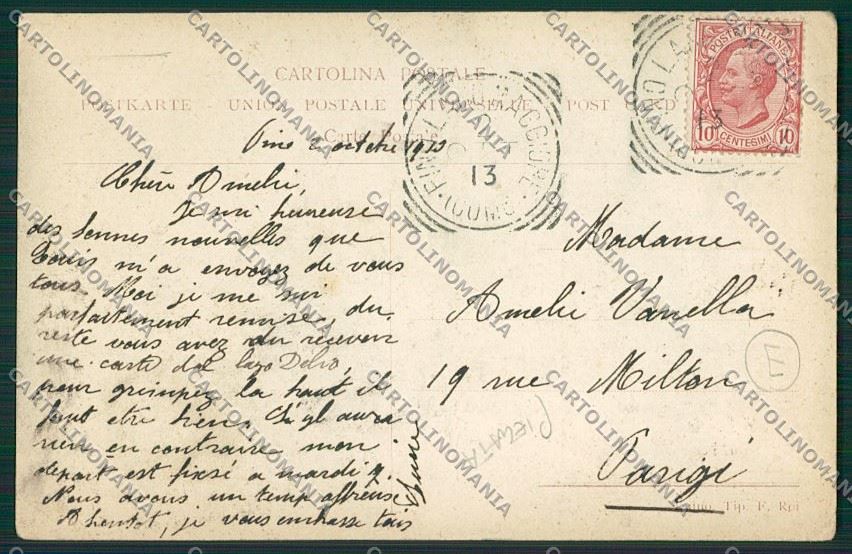 CARTOLINA POSTALE
POSTKARTE - UNION POSTALE UNIVERSELLE - POST CARD
Carte Postale
POSTE ITALIANE
10 CENTESIMI 10
PINO LAGO MAGGIORE
(COMO)
13
Pino 2 octobre 1913
Chère Amelie,
Je sui heureuse
des bonnes nouvelles que
Louis m'a envoyez de vous
tous. Moi je me sui
parfaitement remise, du
reste vous avez du recevoir
une carte dal lago Delio,
pour grimpez la haut il
faut etre bien. S'il aura
rien en contraire mon
depart est fixsé a mardi 7.
Nous avons un temp affreus.
A bientot, je vous embrasse tous
Madame
Amelie Vanella
19 rue Milton
Parigi
PIEGATA
Tip. F. Rpi
CARTOLINOMANIA